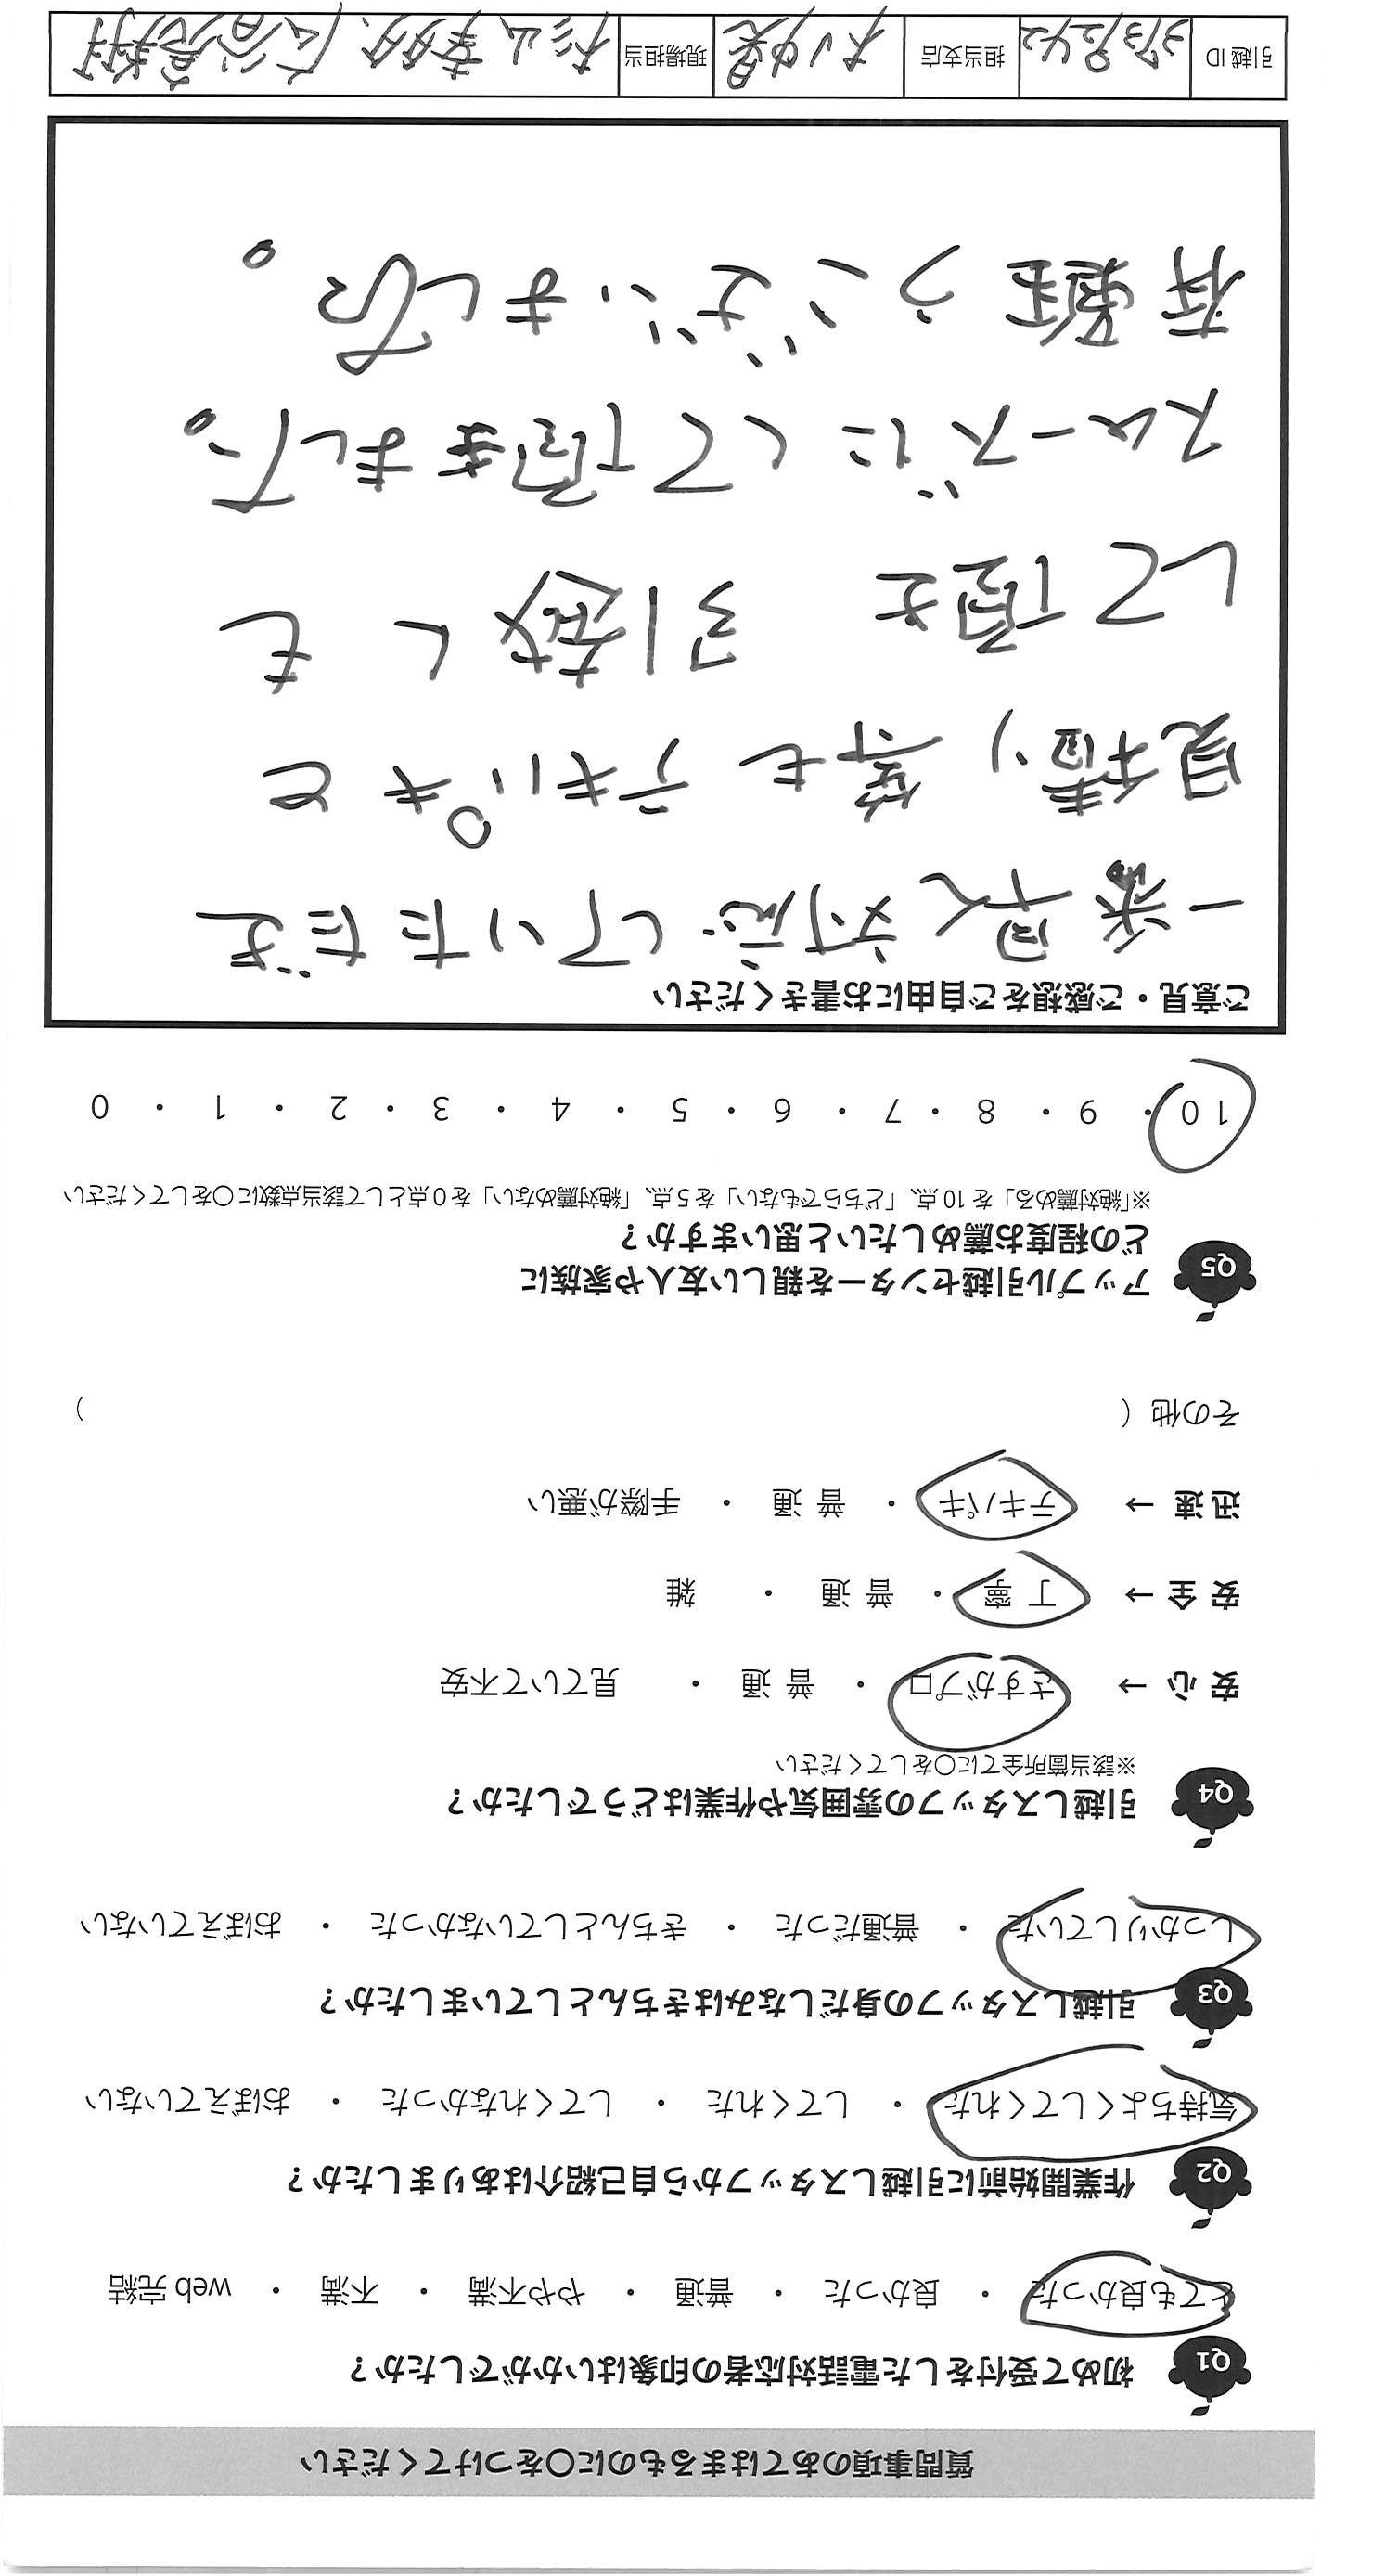 質問事項のあてはまるものに〇をつけてください
Q1 初めて受付をした電話対応者の印象はいかがでしたか？
とても良かった ・ 良かった ・ 普通 ・ やや不満 ・ 不満 ・ web 完結
Q2 作業開始前に引越しスタッフから自己紹介はありましたか？
気持ちよくしてくれた ・ してくれた ・ してくれなかった ・ おぼえていない
Q3 引越しスタッフの身だしなみはきちんとしていましたか？
しっかりしていた ・ 普通だった ・ きちんとしていなかった ・ おぼえていない
Q4 引越しスタッフの雰囲気や作業はどうでしたか？
※該当箇所全てに〇をしてください
安心 → さすがプロ ・ 普通 ・ 見ていて不安
安全 → 丁寧 ・ 普通 ・ 雑
迅速 → テキパキ ・ 普通 ・ 手際が悪い
その他（ ）
Q5 アップル引越センターを親しい友人や家族に
どの程度お薦めしたいと思いますか？
※「絶対薦める」を 10 点、「どちらでもない」を 5 点、「絶対薦めない」を 0 点として該当点数に〇をしてください
10 ・ 9 ・ 8 ・ 7 ・ 6 ・ 5 ・ 4 ・ 3 ・ 2 ・ 1 ・ 0
ご意見・ご感想をご自由にお書きください
一番早く対応していただき
見積り等もテキパキと
して頂き 引越しも
スムーズにして頂きました。
有難うございました。
引越 ID 担当支店 現場担当 杉山